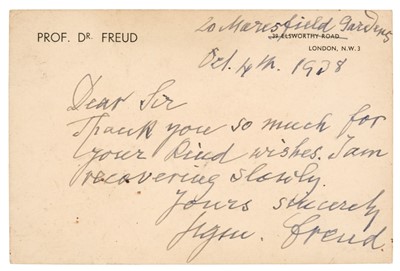 20 Maresfield Gardens
PROF. DR. FREUD
39 ELSWORTHY ROAD
LONDON, N.W. 3
Oct. 4th. 1938
Dear Sir
Thank you so much for
your kind wishes. I am
recovering slowly.
Yours sincerely
Sigm. Freud.